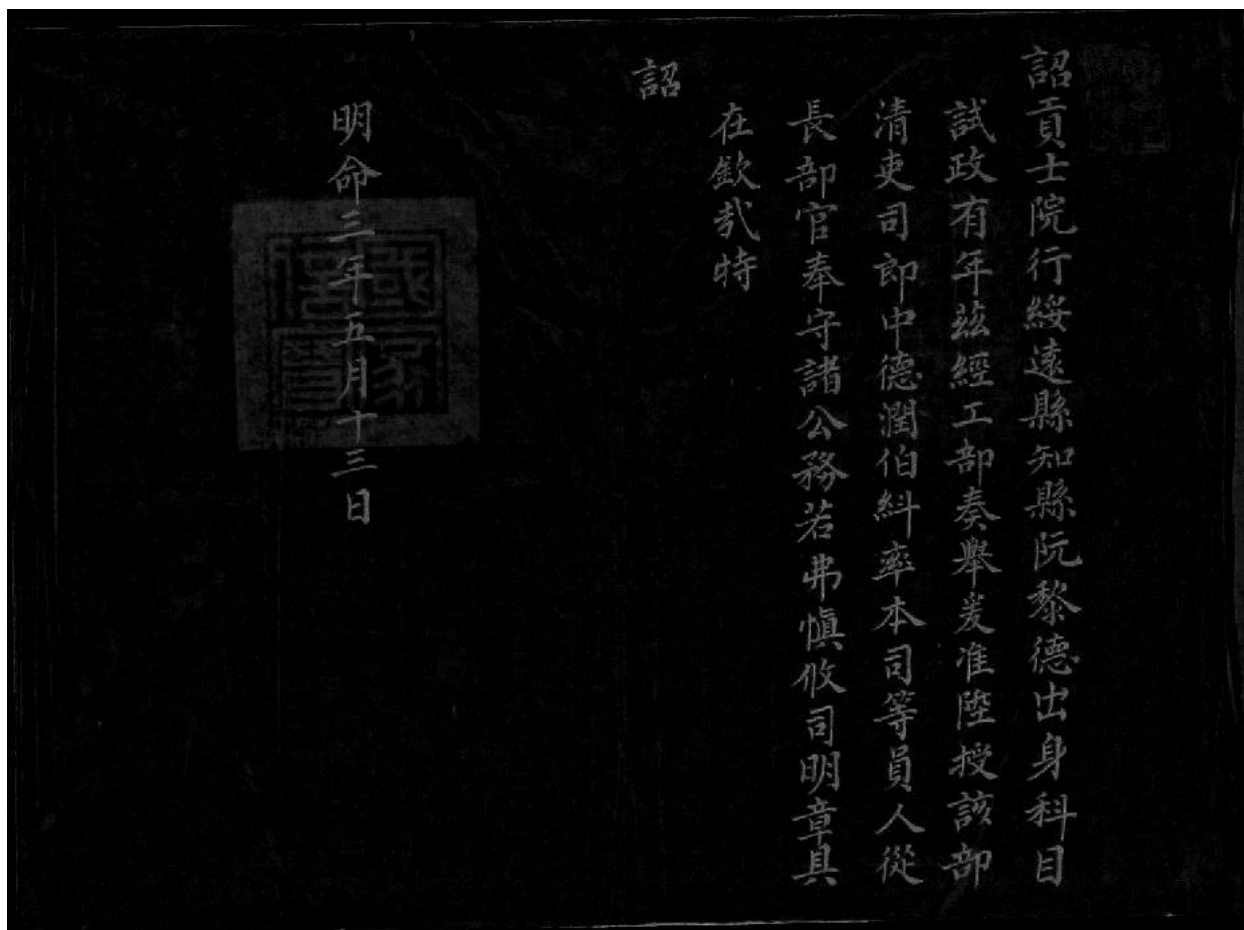 詔貢士院行綏遠縣知縣阮黎德出身科目
試政有年茲經工部奏舉爰准陞授該部
清吏司郎中德潤伯糾率本司等員人從
長部官奉守諸公務若弗慎攸司明章具
在欽哉特
詔
明命二年五月十三日
國家信寶